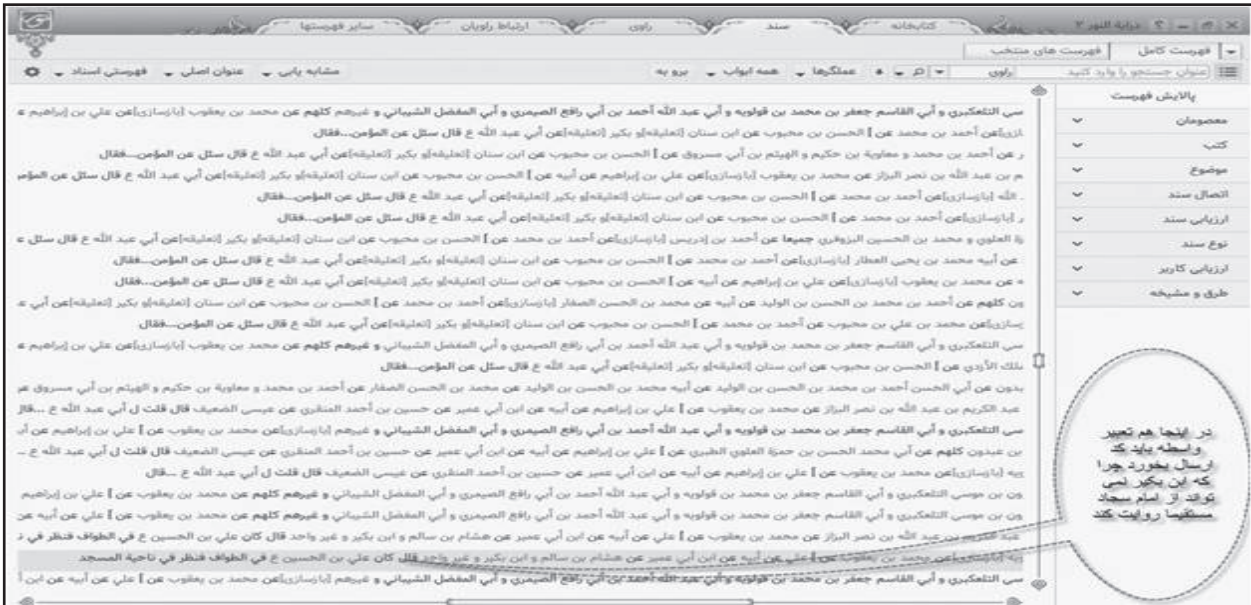 درایة النور ۲
کتابخانه
سند
راوی
ارتباط راویان
سایر فهرستها
فهرست کامل
فهرست های منتخب
عنوان جستجو را وارد کنید
راوی
عملگرها
همه ابواب
برو به
مشابه یابی
عنوان اصلی
فهرستی اسناد
پالایش فهرست
معصومان
کتب
موضوع
اتصال سند
ارزیابی سند
نوع سند
ارزیابی کاربر
طرق و مشیخه
سی التلعکبري و أبي القاسم جعفر بن محمد بن قولویه و أبي عبد الله أحمد بن أبي رافع الصيمري و أبي المفضل الشيباني و غيرهم كلهم عن محمد بن يعقوب [بازسازی]عن علي بن إبراهيم ع
ازی]عن أحمد بن محمد عن ] الحسن بن محبوب عن ابن سنان [تعلیقه]و بکیر [تعلیقه]عن أبي عبد الله ع قال سئل عن المؤمن...فقال
ر عن أحمد بن محمد و معاوية بن حكيم و الهيثم بن أبي مسروق عن ] الحسن بن محبوب عن ابن سنان [تعلیقه]و بکیر [تعلیقه]عن أبي عبد الله ع قال سئل عن المؤمن...فقال
م بن عبد الله بن نصر البزاز عن محمد بن يعقوب [بازسازی]عن علي بن إبراهيم عن أبيه عن ] الحسن بن محبوب عن ابن سنان [تعلیقه]و بکیر [تعلیقه]عن أبي عبد الله ع قال سئل عن المؤمـ
. الله [بازسازی]عن أحمد بن محمد عن ] الحسن بن محبوب عن ابن سنان [تعلیقه]و بکیر [تعلیقه]عن أبي عبد الله ع قال سئل عن المؤمن...فقال
ر [بازسازی]عن أحمد بن محمد عن ] الحسن بن محبوب عن ابن سنان [تعلیقه]و بکیر [تعلیقه]عن أبي عبد الله ع قال سئل عن المؤمن...فقال
زة العلوي و محمد بن الحسين البزوفري جميعا عن أحمد بن إدريس [بازسازی]عن أحمد بن محمد عن ] الحسن بن محبوب عن ابن سنان [تعلیقه]و بکیر [تعلیقه]عن أبي عبد الله ع قال سئل ع
عن أبيه محمد بن يحيى العطار [بازسازی]عن أحمد بن محمد عن ] الحسن بن محبوب عن ابن سنان [تعلیقه]و بکیر [تعلیقه]عن أبي عبد الله ع قال سئل عن المؤمن...فقال
ه عن محمد بن يعقوب [بازسازی]عن علي بن إبراهيم عن أبيه عن ] الحسن بن محبوب عن ابن سنان [تعلیقه]و بکیر [تعلیقه]عن أبي عبد الله ع قال سئل عن المؤمن...فقال
ون كلهم عن أحمد بن محمد بن الحسن بن الوليد عن أبيه عن محمد بن الحسن الصفار [بازسازی]عن أحمد بن محمد عن ] الحسن بن محبوب عن ابن سنان [تعلیقه]و بکیر [تعلیقه]عن أبي عـ
زسازی]عن محمد بن علي بن محبوب عن أحمد بن محمد عن ] الحسن بن محبوب عن ابن سنان [تعلیقه]و بکیر [تعلیقه]عن أبي عبد الله ع قال سئل عن المؤمن...فقال
سی التلعکبري و أبي القاسم جعفر بن محمد بن قولویه و أبي عبد الله أحمد بن أبي رافع الصيمري و أبي المفضل الشيباني و غيرهم كلهم عن محمد بن يعقوب [بازسازی]عن علي بن إبراهيم ع
ملك الأزدي عن ] الحسن بن محبوب عن ابن سنان [تعلیقه]و بکیر [تعلیقه]عن أبي عبد الله ع قال سئل عن المؤمن...فقال
بدون عن أبي الحسن أحمد بن محمد بن الحسن بن الوليد عن أبيه محمد بن الحسن بن الوليد عن محمد بن الحسن الصفار عن أحمد بن محمد و معاوية بن حكيم و الهيثم بن أبي مسروق عن
عبد الكريم بن عبد الله بن نصر البزاز عن محمد بن يعقوب عن ] علي بن إبراهيم عن أبيه عن ابن أبي عمير عن حسين بن أحمد المنقري عن عيسى الضعيف قال قلت ل أبي عبد الله ع ...قال
سی التلعکبري و أبي القاسم جعفر بن محمد بن قولویه و أبي عبد الله أحمد بن أبي رافع الصيمري و أبي المفضل الشيباني و غيرهم [بازسازی]عن محمد بن يعقوب عن ] علي بن إبراهيم عن أبـ
بن عبدون كلهم عن أبي محمد الحسن بن حمزة العلوي الطبري عن ] علي بن إبراهيم عن أبيه عن ابن أبي عمير عن حسين بن أحمد المنقري عن عيسى الضعيف قال قلت ل أبي عبد الله ع ...
ویه [بازسازی]عن محمد بن يعقوب عن ] علي بن إبراهيم عن أبيه عن ابن أبي عمير عن حسين بن أحمد المنقري عن عيسى الضعيف قال قلت ل أبي عبد الله ع ...قال
ون بن موسى التلعکبري و أبي القاسم جعفر بن محمد بن قولویه و أبي عبد الله أحمد بن أبي رافع الصيمري و أبي المفضل الشيباني و غيرهم كلهم عن محمد بن يعقوب عن ] علي بن إبراهيم
ون بن موسى التلعکبري و أبي القاسم جعفر بن محمد بن قولویه و أبي عبد الله أحمد بن أبي رافع الصيمري و أبي المفضل الشيباني و غيرهم كلهم عن محمد بن يعقوب عن ] علي عن أبيه عن
عبد الكريم بن عبد الله بن نصر البزاز عن محمد بن يعقوب عن ] علي عن أبيه عن ابن أبي عمير عن هشام بن سالم و ابن بكير و غير واحد قال كان علي بن الحسين ع في الطواف فنظر في نـ
ویه [بازسازی]عن محمد بن يعقوب عن ] علي عن أبيه عن ابن أبي عمير عن هشام بن سالم و ابن بكير و غير واحد قال كان علي بن الحسين ع في الطواف فنظر في ناحية المسجد
سی التلعکبري و أبي القاسم جعفر بن محمد بن قولویه و أبي عبد الله أحمد بن أبي رافع الصيمري و أبي المفضل الشيباني و غيرهم [بازسازی]عن محمد بن يعقوب عن ] علي عن أبيه عن ابن أ
در اینجا هم تعبیر
واسطه باید کد
ارسال بخورد چرا
که ابن بکیر نمی
تواند از امام سجاد
مستقیما روایت کند